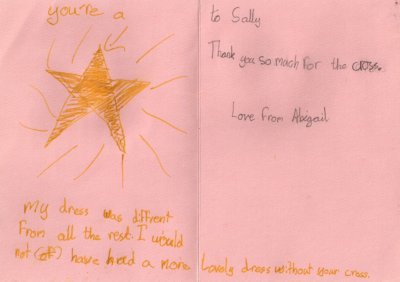 you're a
my dress was diffrent
from all the rest. I would
not (of) have had a more Lovely dress without your cross.
to Sally
Thank you so much for the cross.
Love from Abigail